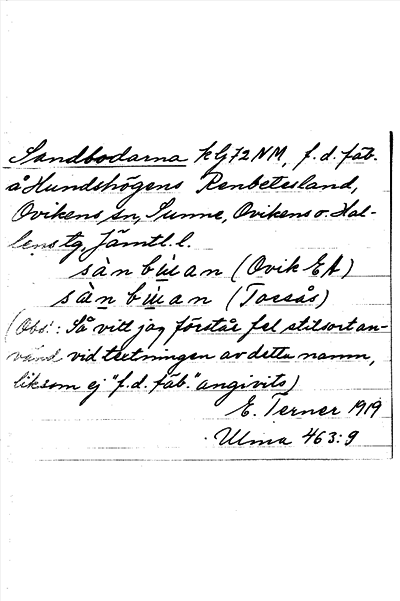 Sandbodarna kG72NM, f.d. fäb.
å Hundshögens Renbetesland,
Ovikens sn, Sunne, Ovikens o. Hal-
lens tg, Jämtl. l.
sànbùan (Ovik EA)
sànbùan (Torsås)
(Obs: Så vitt jag förstår fel stilsort an-
vänd vid textningen av detta namn,
liksom ej "f.d. fäb." angivits)
E. Terner 1919
Ulma 463:9